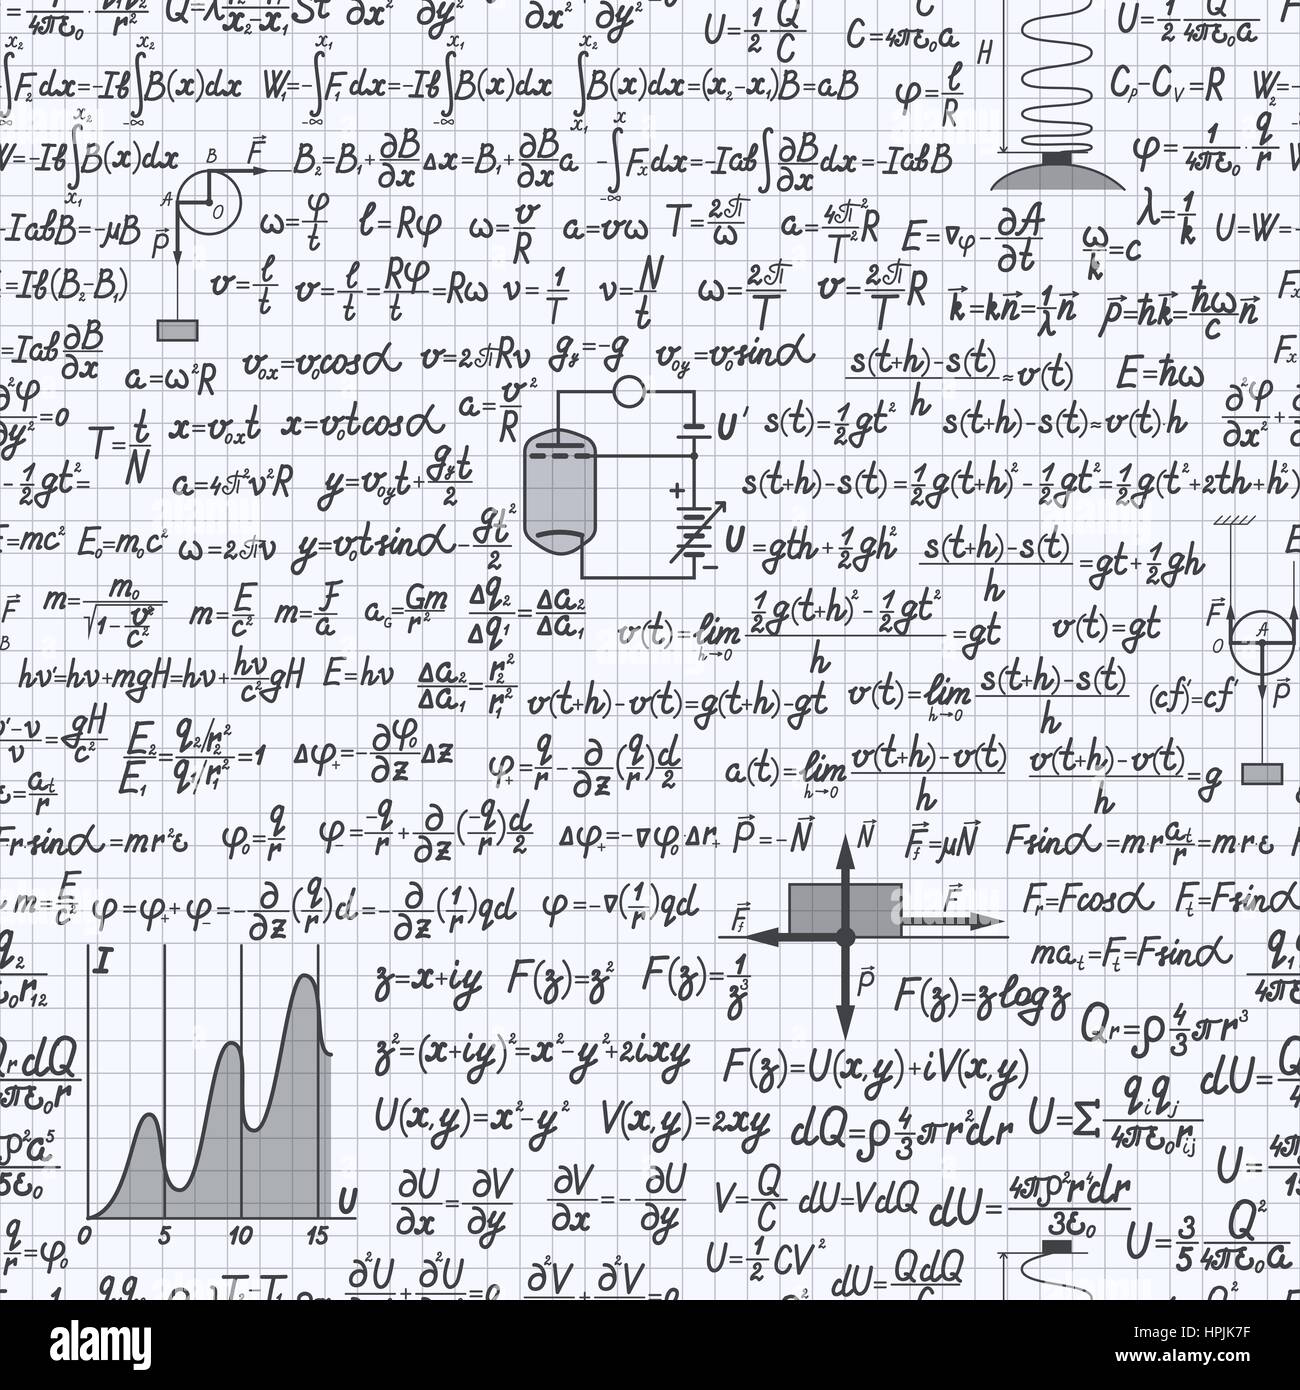 U=½ Q/C
C=4πε₀a
H
∫F₂dx=-Iв∫B(x)dx W₁=-∫F₁dx=-Iв∫B(x)dx ∫B(x)dx=(x₂-x₁)B=aB
φ=l/R
Cₚ-Cᵥ=R
W=-Iв∫B(x)dx
B F
B₂=B₁+∂B/∂x Δx=B₁+∂B/∂x a -∫Fₓdx=-Iaв∫∂B/∂x dx=-IaвB
φ=1/4πε₀·q/r
A O P
-IaвB=-μB
ω=φ/t l=Rφ ω=v/R a=vω T=2π/ω a=4π²/T² R E=∇φ-∂A/∂t ω/k=c λ=1/k
=Iв(B₂-B₁)
v=l/t v=l/t=Rφ/t=Rω ν=1/T ν=N/t ω=2π/T v=2π/T R k=kn=1/λ n p=ħk=ħω/c n
=Iaв∂B/∂x
a=ω²R vₒₓ=v₀cosα v=2πRν gᵧ=-g vₒᵧ=v₀sinα s(t+h)-s(t)/h≈v(t) E=ħω
T=t/N x=vₒₓt x=v₀tcosα a=v²/R U' s(t)=½gt² s(t+h)-s(t)≈v(t)·h
a=4π²ν²R y=vₒᵧt+gᵧt/2 + s(t+h)-s(t)=½g(t+h)²-½gt²=½g(t²+2th+h²)
E=mc² E₀=m₀c² ω=2πν y=v₀tsinα-gt²/2 U - =gth+½gh² s(t+h)-s(t)/h=gt+½gh
m=m₀/√1-v²/c² m=E/c² m=F/a a_G=Gm/r² Δq₂/Δq₁=Δa₂/Δa₁ v(t)=lim h→0 ½g(t+h)²-½gt²/h=gt v(t)=gt
F O A P
hν'=hν+mgH=hν+hν/c² gH E=hν Δa₂/Δa₁=r₂²/r₁² v(t+h)-v(t)=g(t+h)-gt v(t)=lim h→0 s(t+h)-s(t)/h (cf)'=cf'
ν'-ν/ν=gH/c² E₂/E₁=q₂/r₂²/q₁/r₁²=1 Δφ₊=-∂φ₀/∂z Δz φ₊=q/r-∂/∂z(q/r)d/2 a(t)=lim h→0 v(t+h)-v(t)/h v(t+h)-v(t)/h=g
ε=aₜ/r
Frsinα=mr²ε φ₀=q/r φ₋=-q/r+∂/∂z(-q/r)d/2 Δφ₊=-∇φ₀·Δr₊ P=-N N F_f=μN Fsinα=m·r aₜ/r=m·r·ε
m=E/c² φ=φ₊+φ₋=-∂/∂z(q/r)d=-∂/∂z(1/r)qd φ=-∇(1/r)qd F_f F Fᵣ=Fcosα Fₜ=Fsinα
maₜ=Fₜ=Fsinα
I
z=x+iy F(z)=z² F(z)=1/z³ P F(z)=zlogz
Qᵣ=ρ 4/3 πr³
z²=(x+iy)²=x²-y²+2ixy F(z)=U(x,y)+iV(x,y)
U(x,y)=x²-y² V(x,y)=2xy dQ=ρ 4/3 πr²dr U=Σ qᵢqⱼ/4πε₀rᵢⱼ
∂U/∂x=∂V/∂y ∂V/∂x=-∂U/∂y V=Q/C dU=VdQ dU=4πρ²r⁴dr/3ε₀
U
0 5 10 15
q/r=φ₀
U=½CV² dU=QdQ/C U=3/5 Q²/4πε₀a
alamy
Image ID: HPJK7F
www.alamy.com